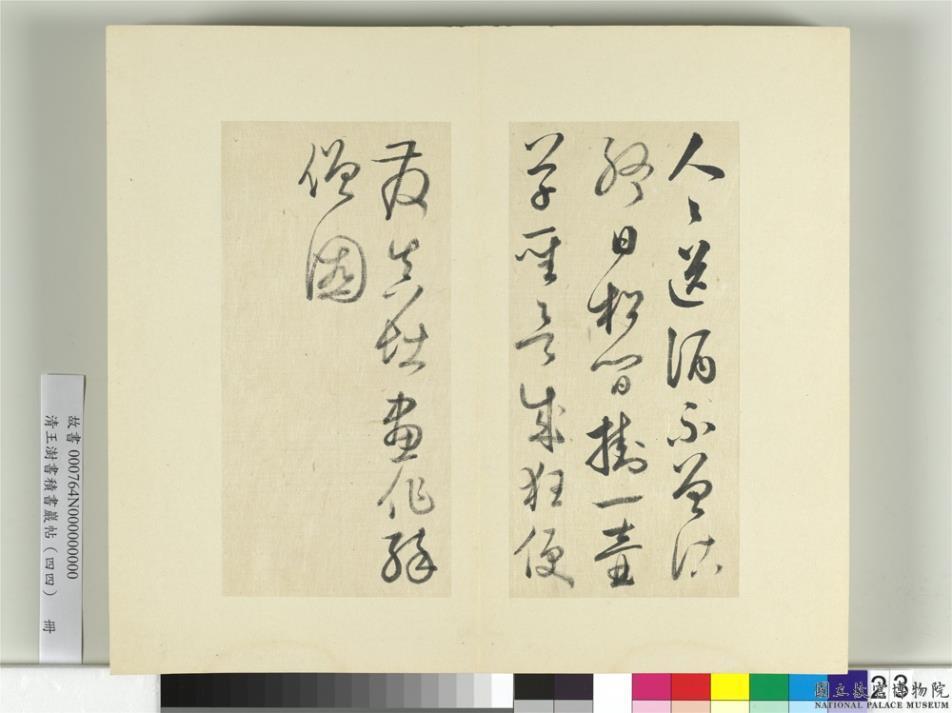 人々送酒不曾沽
終日松間掛一壺
草聖欲成狂便
發真堪畫作醉
僧圖
故書 000764N000000000
清王澍書積書巖帖（四四） 冊
23
國立故宮博物院
NATIONAL PALACE MUSEUM